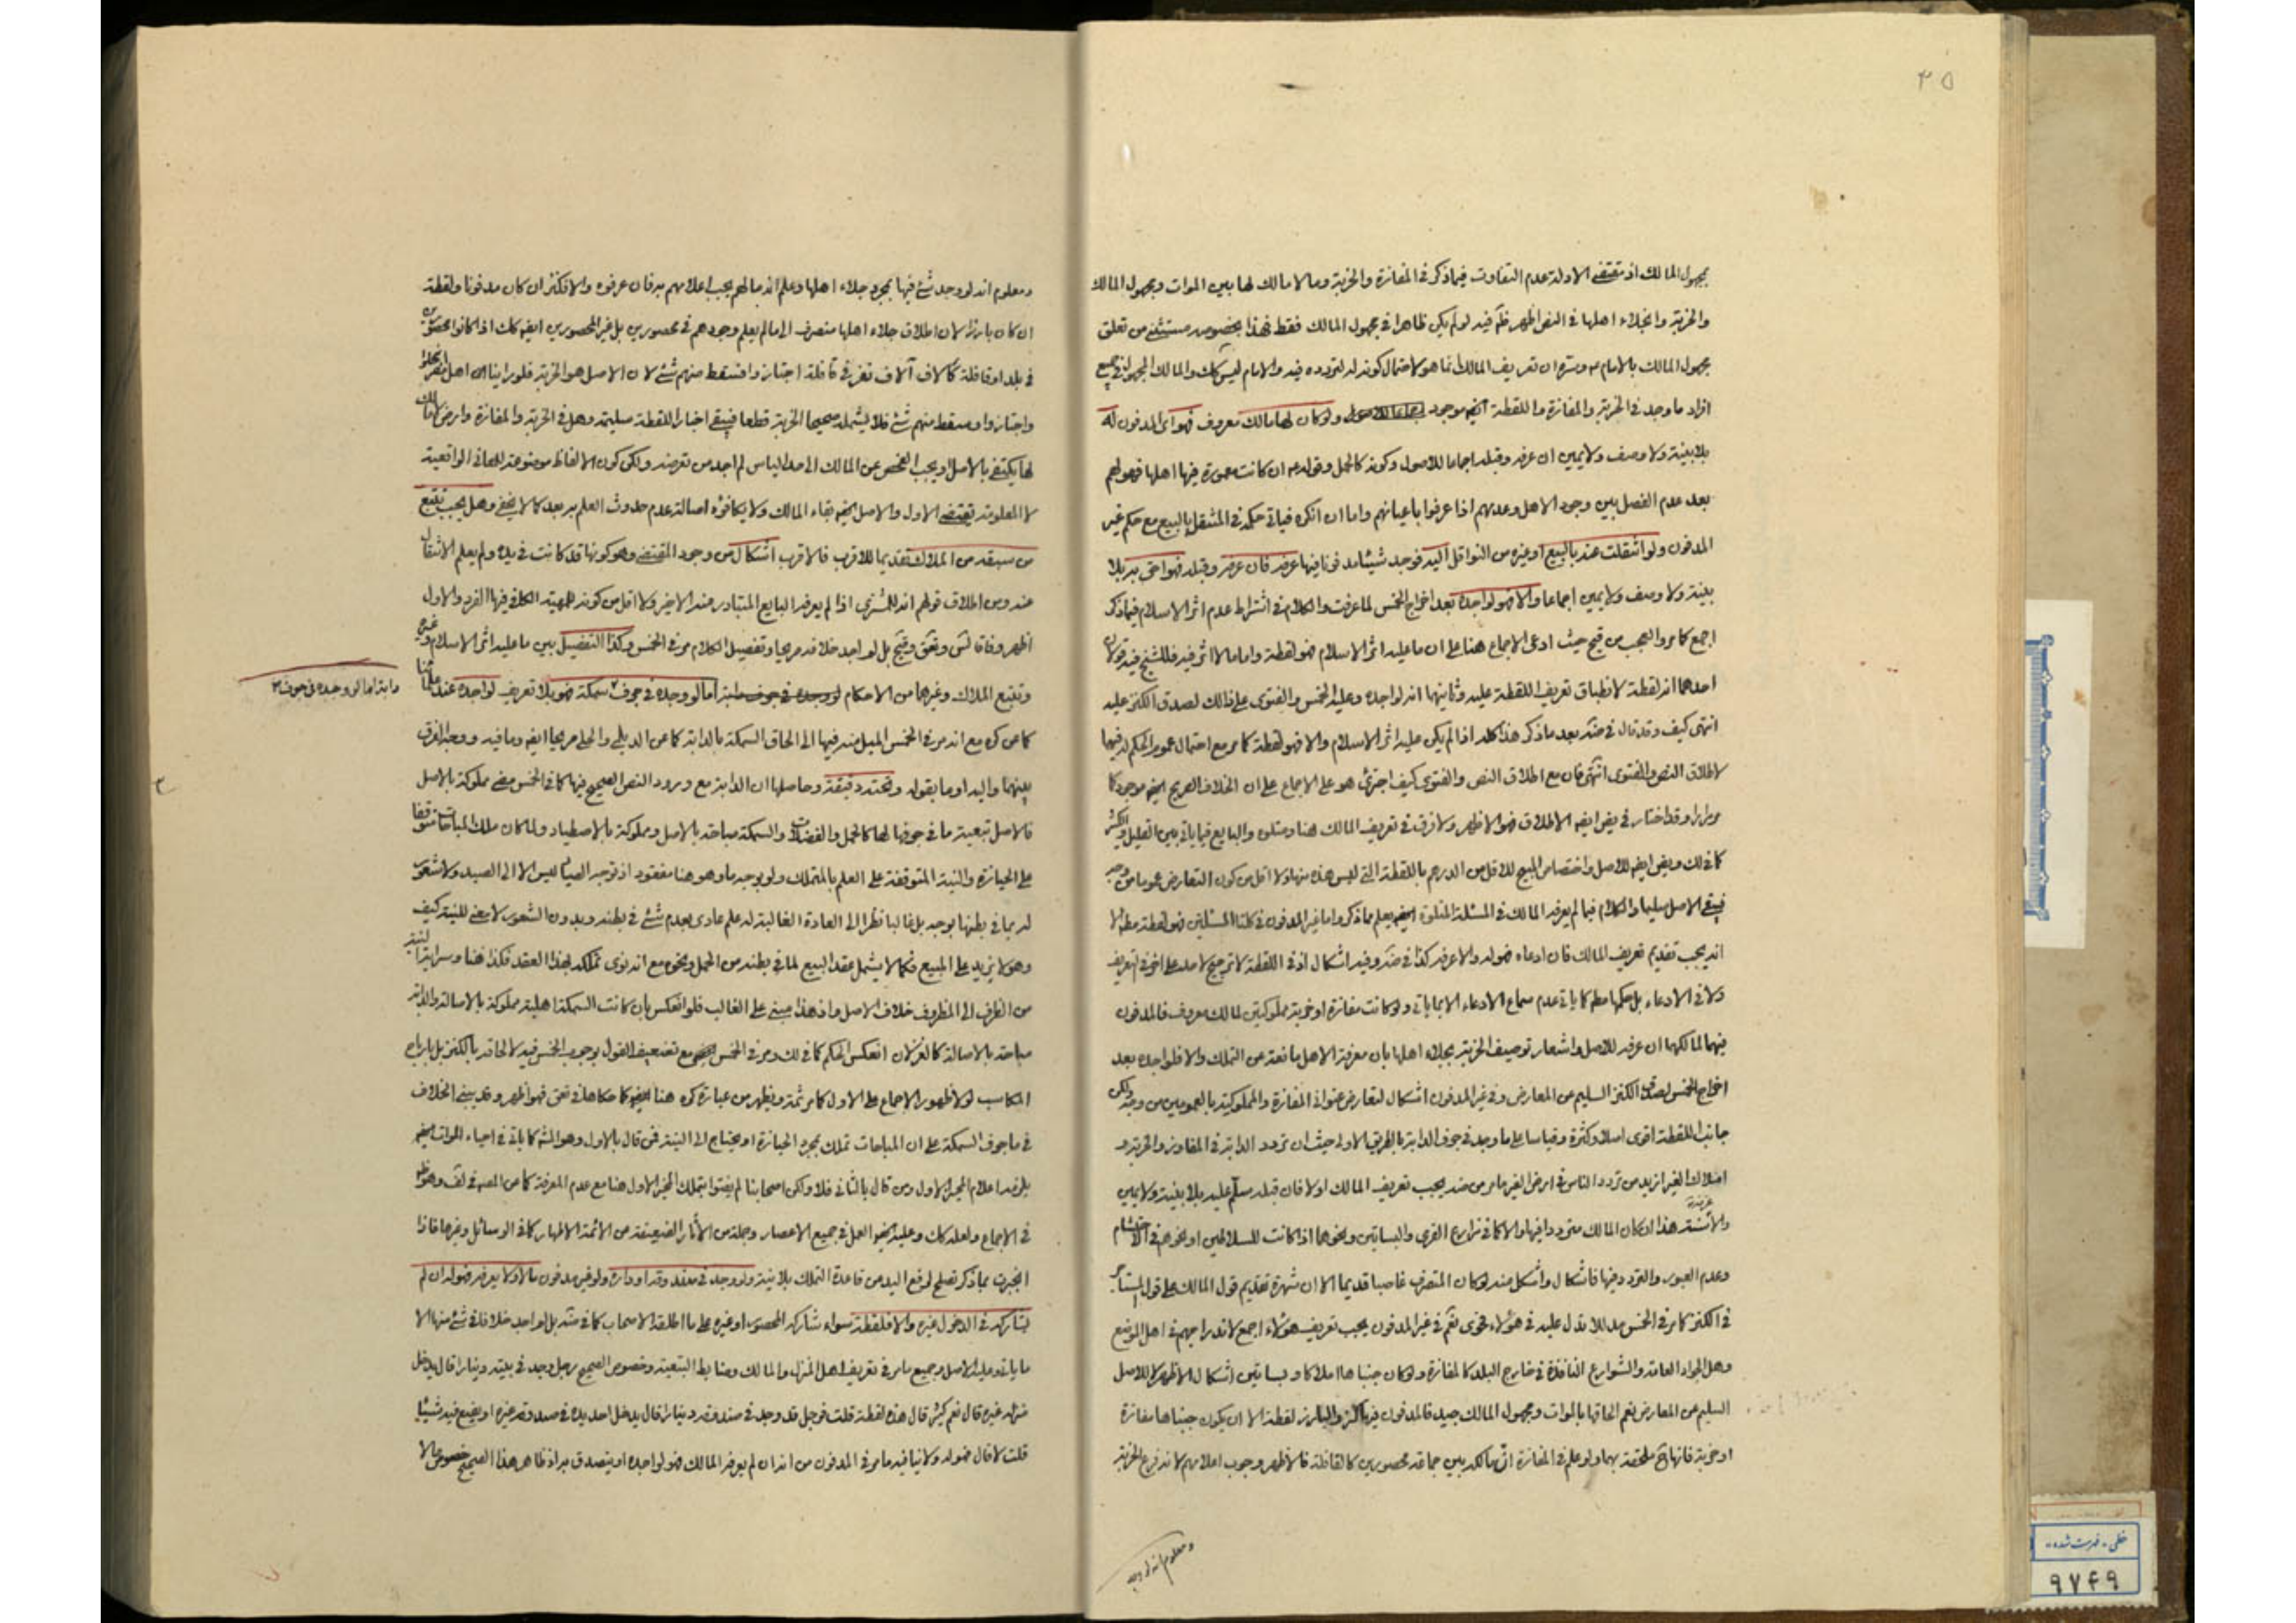 ۴۵
بمجهول المالك اذ مقتضى الادلة عدم التفاوت فيما ذكر فى المفازة والخربة وما لا مالك لها بين الموات ومجهول المالك
والخربة وانجلاء اهلها فى النص اظهر فلم قيد لو لم يكن ظاهرا فى مجهول المالك فقط فهذا بخصوصه مستثنى من تعلق
مجهول المالك بالامام ع وسره ان تعريف المالك انما هو لاحتمال كونه له لتردده فيه والامام ليس كك والمالك المجهول فى جميع
افراد ما وجد فى الخربة والمفازة واللقطة ايضا موجود ولو كان لها مالك معروف فهو اى المدفون له
بلا بينة ولا وصف ولا يمين ان عرفه وقبله اجماعا للاصول وكونه كالحمل وقوله ع ان كانت معمورة فيها اهلها فهو لهم
بعد عدم الفصل بين وجود الاهل وعدمهم اذا عرفوا باعيانهم واما ان انكره فياتى حكمه فى المنتقل بالبيع مع حكم غير
المدفون ولو انتقلت عنه بالبيع او غيره من النواقل اليه فوجد شيئا مدفونا فيها عرفه فان عرفه وقبله فهو احق به بلا
بينة ولا وصف ولا يمين اجماعا والا فهو لواجده بعد اخراج الخمس لما عرفت والكلام فى اشتراط عدم اثر الاسلام فيما ذكر
اجمع كما مر والعجب من حيث ادعى الاجماع هنا على ان ما عليه اثر الاسلام فهو لقطة واما ما لا اثر فيه فللشيخ فيه قولان
احدهما انه لقطة لانطباق تعريف اللقطة عليه وثانيهما انه لواجده وعليه الخمس والفتوى على ذالك لصدق الكنز عليه
انتهى كيف وقد قال فى بعد ما ذكر هذا كله اذا لم يكن عليه اثر الاسلام والا فهو لقطة كما مر مع احتمال عموم الحكم له فيهما
لاطلاق النص والفتوى انتهى فان مع اطلاق النص والفتوى كيف اجترئ هو على الاجماع على ان الخلاف الصريح ايضا موجود كما
مر مرارا وقد اختار فى ايضا الاطلاق فهو الاظهر ولا فرق فى تعريف المالك هنا ومثله والبايع فيما ياتى بين القليل والكثير
كما فى لك و ايضا للاصل واختصاص المبيح للاقل من الدرهم باللقطة التى ليس هذه منها ولا اقل من كون التعارض عموما من وجه
فيبقى الاصل سليما والكلام فيما لم يعرفه المالك فى المسئلة المتلوة ايضا يعلم مما ذكر واما غير المدفون فى كلتا المسئلتين فهو لقطة الا
انه يجب تقديم تعريف المالك فان ادعاه فهو له والا عرفه كذا فى وفيه اشكال اذ فى اللقطة لا ترجيح لاحد على اخر فى التعريف
ولا فى الادعاء بل حكمها كما ياتى عدم سماع الادعاء الا بما ياتى ولو كانت مفازة او خربة مملوكتين لمالك معروف فالمدفون
فيهما لمالكهما ان عرفه للاصل واشعار توصيف الخربة بجلاء اهلها بان معرفة الاهل مانعة عن التملك والا فلواجده بعد
اخراج الخمس لصدق الكنز السليم عن المعارض وفى غير المدفون اشكال لتعارض عنوانى المفازة والمملوكية بالعمومين من وجه ولكن
جانب اللقطة اقوى اصلا وكثرة وقياسا على ما وجد فى جوف الدابة بالطريق الاولى حيث ان تردد الدابة فى المفاوز والخربة و
املاك الغير ازيد من تردد الناس فى ارض الغير مر من يجب تعريف المالك اولا فان قبله سلم عليه بلا بينة ولا يمين
والا هذا ان كان المالك مترددا فيها والا كما فى مزارع القرى والبساتين ونحوها اذا كانت للسلاطين او نحوهم فى الاحتشام
وعدم العبور والتردد فيها فاشكال واشكل منه لو كان المتصرف غاصبا قديما الا ان شهرة تقديم قول المالك على قول المستأجر
فى الكنز كما مر فى الخمس مما يدل عليه فى هؤلاء نعم فى غير المدفون يجب تعريف هؤلاء اجمع لاندراجهم فى اهل الموضع
وهل الجواد العامة والشوارع النافذة فى خارج البلد كالمفازة ولو كان جنباها املاكا وبساتين اشكال الاظهر لا للاصل
السليم عن المعارض نعم الحاقها بالموات ومجهول المالك جيد فالمدفون فيها كنز والبارز لقطة الا ان يكون جنباها مفازة
او خربة فانها ح ملحقة بهما ولو علم فى المفازة ان مالكه بين جماعة محصورين كالقافلة فالاظهر وجوب اعلامهم لانه فرع الخربة
ومعلوم انه لو وجد
ومعلوم انه لو وجد شئ فيها بمجرد جلاء اهلها وعلم انه مالهم يجب اعلامهم به فان عرفوه والا فكنز ان كان مدفونا ولقطة
ان كان بارزا لان اطلاق جلاء اهلها منصرف الى ما لم يعلم وجودهم فى محصورين بل غير المحصورين ايضا كك اذا كانوا محصورين
فى بلد او قافلة كآلاف آلاف نفر فى قافلة اجتازوا فسقط منهم شئ لان الاصل هو الخربة فلو راينا ان اهل انجلوا
واجتازوا وسقط منهم شئ فلا يشمله صحيحا الخربة قطعا فيبقى اخبار اللقطة سليمة وهل فى الخربة والمفازة وارض لا مالك
لها يكتفى بالاصل او يجب الفحص عن المالك الى حد الياس لم اجد من تعرضه ولكن كون الالفاظ موضوعة للمعانى الواقعية
لا المعلومة تقتضى الاول والاصل ايضا بقاء المالك ولا يكافؤه اصالة عدم حدوث العلم به بعد كما لا يخفى وهل يجب تتبع
من سبقه من الملاك تقديما للاقرب فالاقرب اشكال من وجود المقتضى وهو كونها قد كانت فى يده ولم يعلم الانتقال
عنه ومن اطلاق قولهم انه للمشترى اذا لم يعرفه البايع المتبادر عنه الاخير ولا اقل من كونه للمهية الكلى فيها الفرد والاول
اظهر وفاقا بل لم اجد خلافه صريحا وتفصيل الكلام مر فى الخمس وكذا التفصيل بين ما عليه اثر الاسلام وغيره
وتتبع الملاك وغيرهما من الاحكام اما لو وجده فى جوف سمكة فهو بلا تعريف لواجده عند علمائنا
دابة اما لو وجده فى جوف
كما عن كره مع انه مر فى الخمس الميل منه فيها الى الحاق السمكة بالدابة كما عن الديلمى والحلى صريحا ايضا وما فيه ووجه الفرق
بينهما واليه اوما بقوله وتحته دقيقة وحاصلها ان الدابة مع ورود النص الصحيح فيها كما فى الخمس مضى مملوكة بالاصل
فالاصل تبعية ما فى جوفها لها كالحمل والفضلات والسمكة مباحة بالاصل ومملوكة بالاصطياد ولما كان ملك المباحات متوقفا
على الحيازة والنية المتوقفة على العلم بالمتملك ولو بوجه ما وهو هنا مفقود اذ توجه الصياد ليس الا الى الصيد ولا شعور
له بما فى بطنها بوجه بل غالبا نظرا الى العادة الغالبة له علم عادى بعدم شئ فى بطنه وبدون الشعور لا معنى للنية كيف
وهو لا يزيد على المبيع فكما لا يشمل عقد البيع لما فى بطنه من الحمل ونحوه مع انه نوى تملكه بهذا العقد فكذا هنا وسراية النية
من الظرف الى المظروف خلاف الاصل واذ هذا مبنى على الغالب فلو انعكس بان كانت السمكة اهلية مملوكة بالاصالة والدابة
مباحة بالاصالة كالغزلان انعكس الحكم كما فى لك ومر فى الخمس مع تضعيف القول بوجوب الخمس فيه لالحاقه بالكنز بل بارباح
المكاسب لولا ظهور الاجماع على الاول كما مر ثمة ويظهر من عبارة كره هنا ايضا كما حكاها فى فهو اظهر وقد يبنى الخلاف
فى ما جوف السمكة على ان المباحات تملك بمجرد الحيازة او يحتاج الى النية فمن قال بالاول وهو كما ياتى فى احياء الموات ايضا
يلزمه اعلام المحيز الاول ومن قال بالثانى فلا ولكن اصحابنا لم يفتوا بتملك المحيز الاول هنا مع عدم المعرفة كما عن المصنف فى لف وهو
فى الاجماع ولعله كك وعليه ايضا العمل فى جميع الاعصار وجملة من الآثار الضعيفة من الائمة الاطهار كما فى الوسائل وغيرها فاذا
انجبرت بما ذكر تصلح لرفع اليد من قاعدة التملك بلا نية ولو وجد فى صندوقه او داره ولو غير مدفون مالا ولا يعرفه فهو له ان لم
يشاركه فى الدخول غيره والا فلقطة سواء شاركه المحصور او غيره على ما اطلقه الاصحاب كما فى بل لم اجد خلافا فى شئ منها الا
ما ياتى وعليه الاصل وجميع ما مر فى تعريف اهل المنزل والمالك وضابط التبعية وخصوص الصحيح رجل وجد فى بيته دينارا قال يدخل
منزله غيره قال نعم كثير قال هذه لقطة قلت فرجل قد وجد فى صندوقه دينارا قال يدخل احد يده فى صندوقه غيره او يضع فيه شيئا
قلت لا قال فهو له ولا ينافيه ما مر فى المدفون من انه ان لم يعرفه المالك فهو لواجده او يتصدق به اذ ظاهر هذا الصحيح خصوص ما لا
خطى - فهرست شده
۹۷۴۹